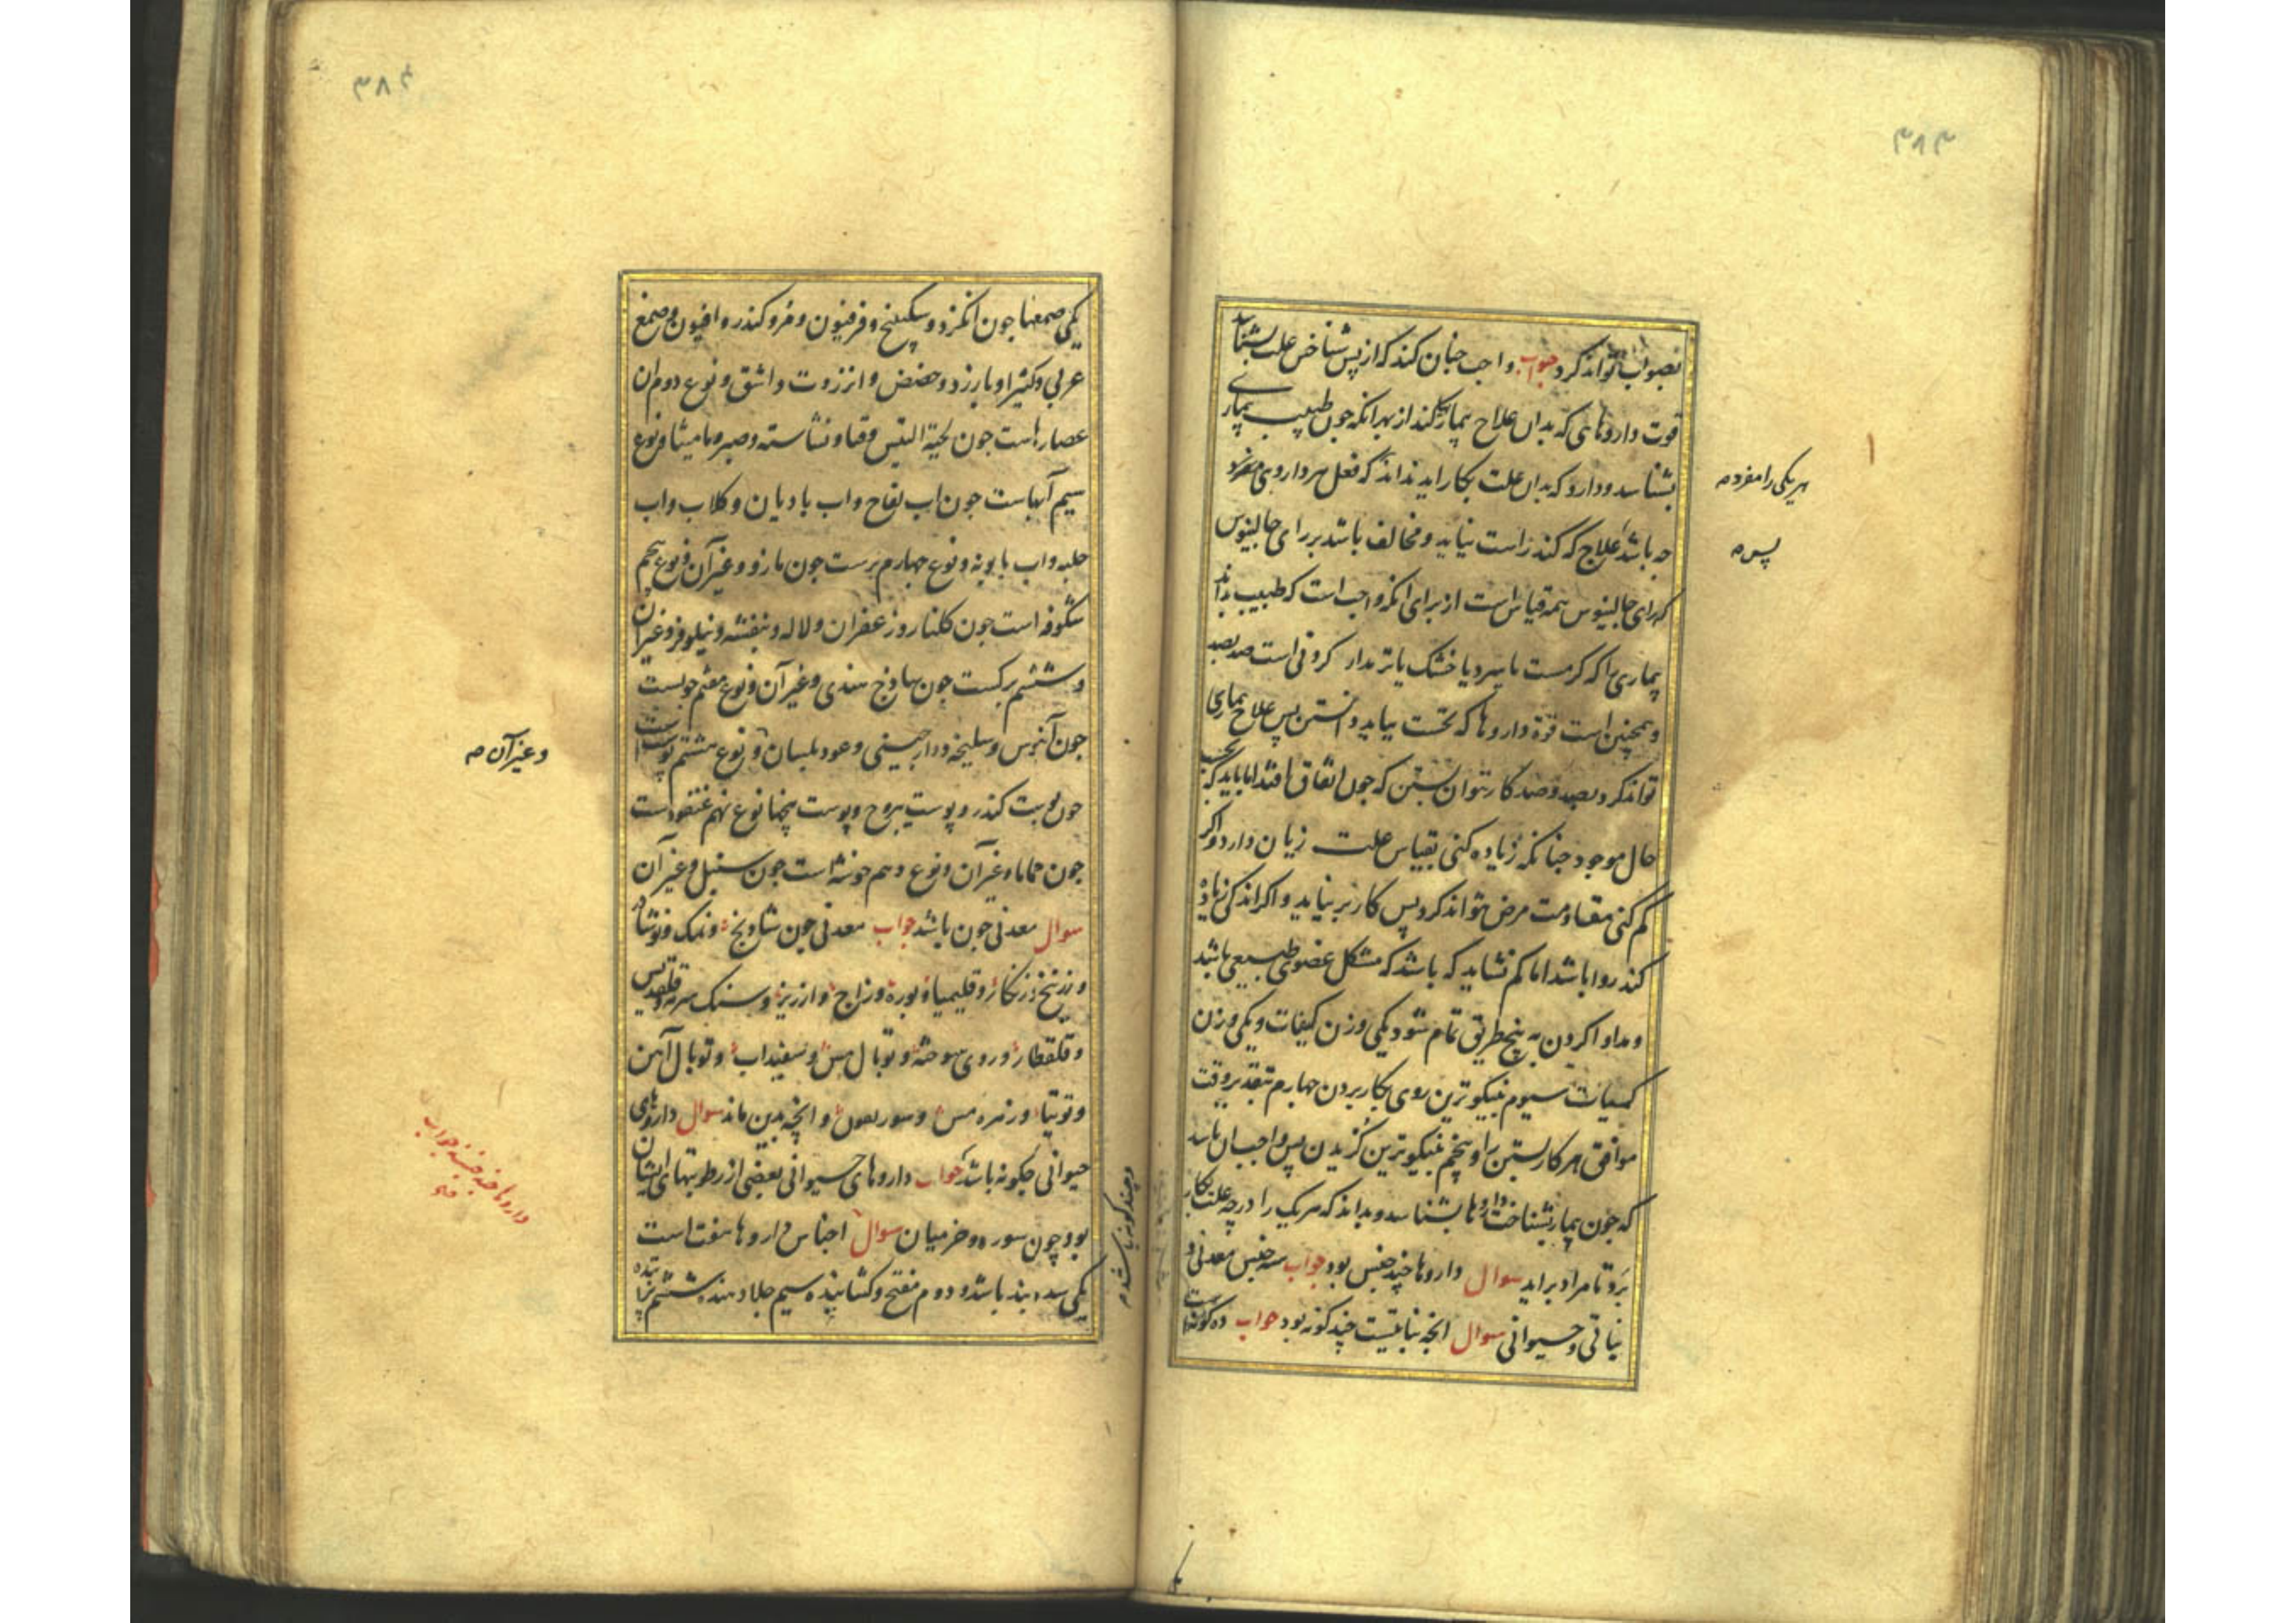 ۳۸۳
بصواب تواند کرد جواب واجب چنان کند که از پس شناختن علت بشناسد
قوت داروهائی که بدان علاج بیمار کند از بهر انکه چون طبیب بیماری
بشناسد و دارو که بدان علت بکار اید نداند که فعل هر داروی مفرد
چه باشد علاج که کند راست نیاید و مخالف باشد بر رای جالینوس
که رای جالینوس همه قیاس است از برای انکه واجب است که طبیب بداند
بیماری را که کرمست یا سرد یا خشک یا تر مدار کردنی است ضد بضد
و همچنین است قوة داروها که نخست بیاید دانستن پس علاج بیماری
تواند کرد بضد و ضد کار نتوان بستن که چون اتفاق افتد اما باید که بحسب
حال موجود چنانکه زیاده کنی بقیاس علت زیان دارد و اکر
کم کنی مقاومت مرض نتواند کرد پس کار بر نیاید و اکر اندکی زیاده
کند روا باشد اما کم نشاید که باشد که مشکل عضوی طبیعی باشد
و مداوا کردن به پنج طریق تمام شود یکی وزن کیفیات و یکی وزن
کمیات سیوم نیکوترین روی بکار بردن چهارم تقدیر وقت
موافق هر کار بستن را و پنجم نیکوترین کزیدن پس واجب ان باشد
که چون بیمار بشناخت داروها بشناسد و بداند که هر یک را در چه علت بکار
برد تا مراد براید سوال داروها چند جنس بود جواب سه جنس معدنی و
نباتی و حیوانی سوال انچه نباتیست چند کونه بود جواب ده کونه است
هر یکی را مفرد
پس
۳۸۴
یکی صمغها چون انکزد و سکبینج و فرفیون و مر و کندر و افیون و صمغ
عربی و کتیرا و بارزد و حضض و انزروت و اشق و نوع دوم ان
عصارهاست چون لحیة التیس و قاقیا و نشاسته و صبر و مامیثا و نوع
سیم آبهاست چون اب تفاح و اب بادیان و کلاب و اب
حلبه و اب بابونه و نوع چهارم برست چون مازو و غیر آن و نوع پنجم
شکوفه است چون کلنار و زعفران و لاله و بنفشه و نیلوفر و غیر ان
و ششم برکست چون ساذج هندی و غیر آن و نوع هفتم چوبست
چون آبنوس و سلیخه و دارچینی و عود بلسان و نوع هشتم پوست است
چون پوست کندر و پوست یبروح و پوست بیخها نوع نهم عنقودست
چون حماما و غیر آن و نوع دهم خوشه است چون سنبل و غیر آن
سوال معدنی چون باشد جواب معدنی چون شادنج و نمک و نوشادر
و زرنیخ و زنکار و قلیمیا و بوره و زاج و ارزیز و سنک سرمه و قلقدیس
و قلقطار و روی سوخته و توبال مس و سفیداب و توبال آهن
و توتیا و زهره مس و و انچه بدین ماند سوال داروهای
حیوانی چکونه باشد جواب داروهای حیوانی بعضی از رطوبتهای ایشان
بود چون و خزمیان سوال اجناس داروها هفت است
یکی باشد و دوم مفتح و کشاینده سیم جلا دهنده ششم
و غیر آن
داروها چند جنسند جواب
و چند کونه باشند